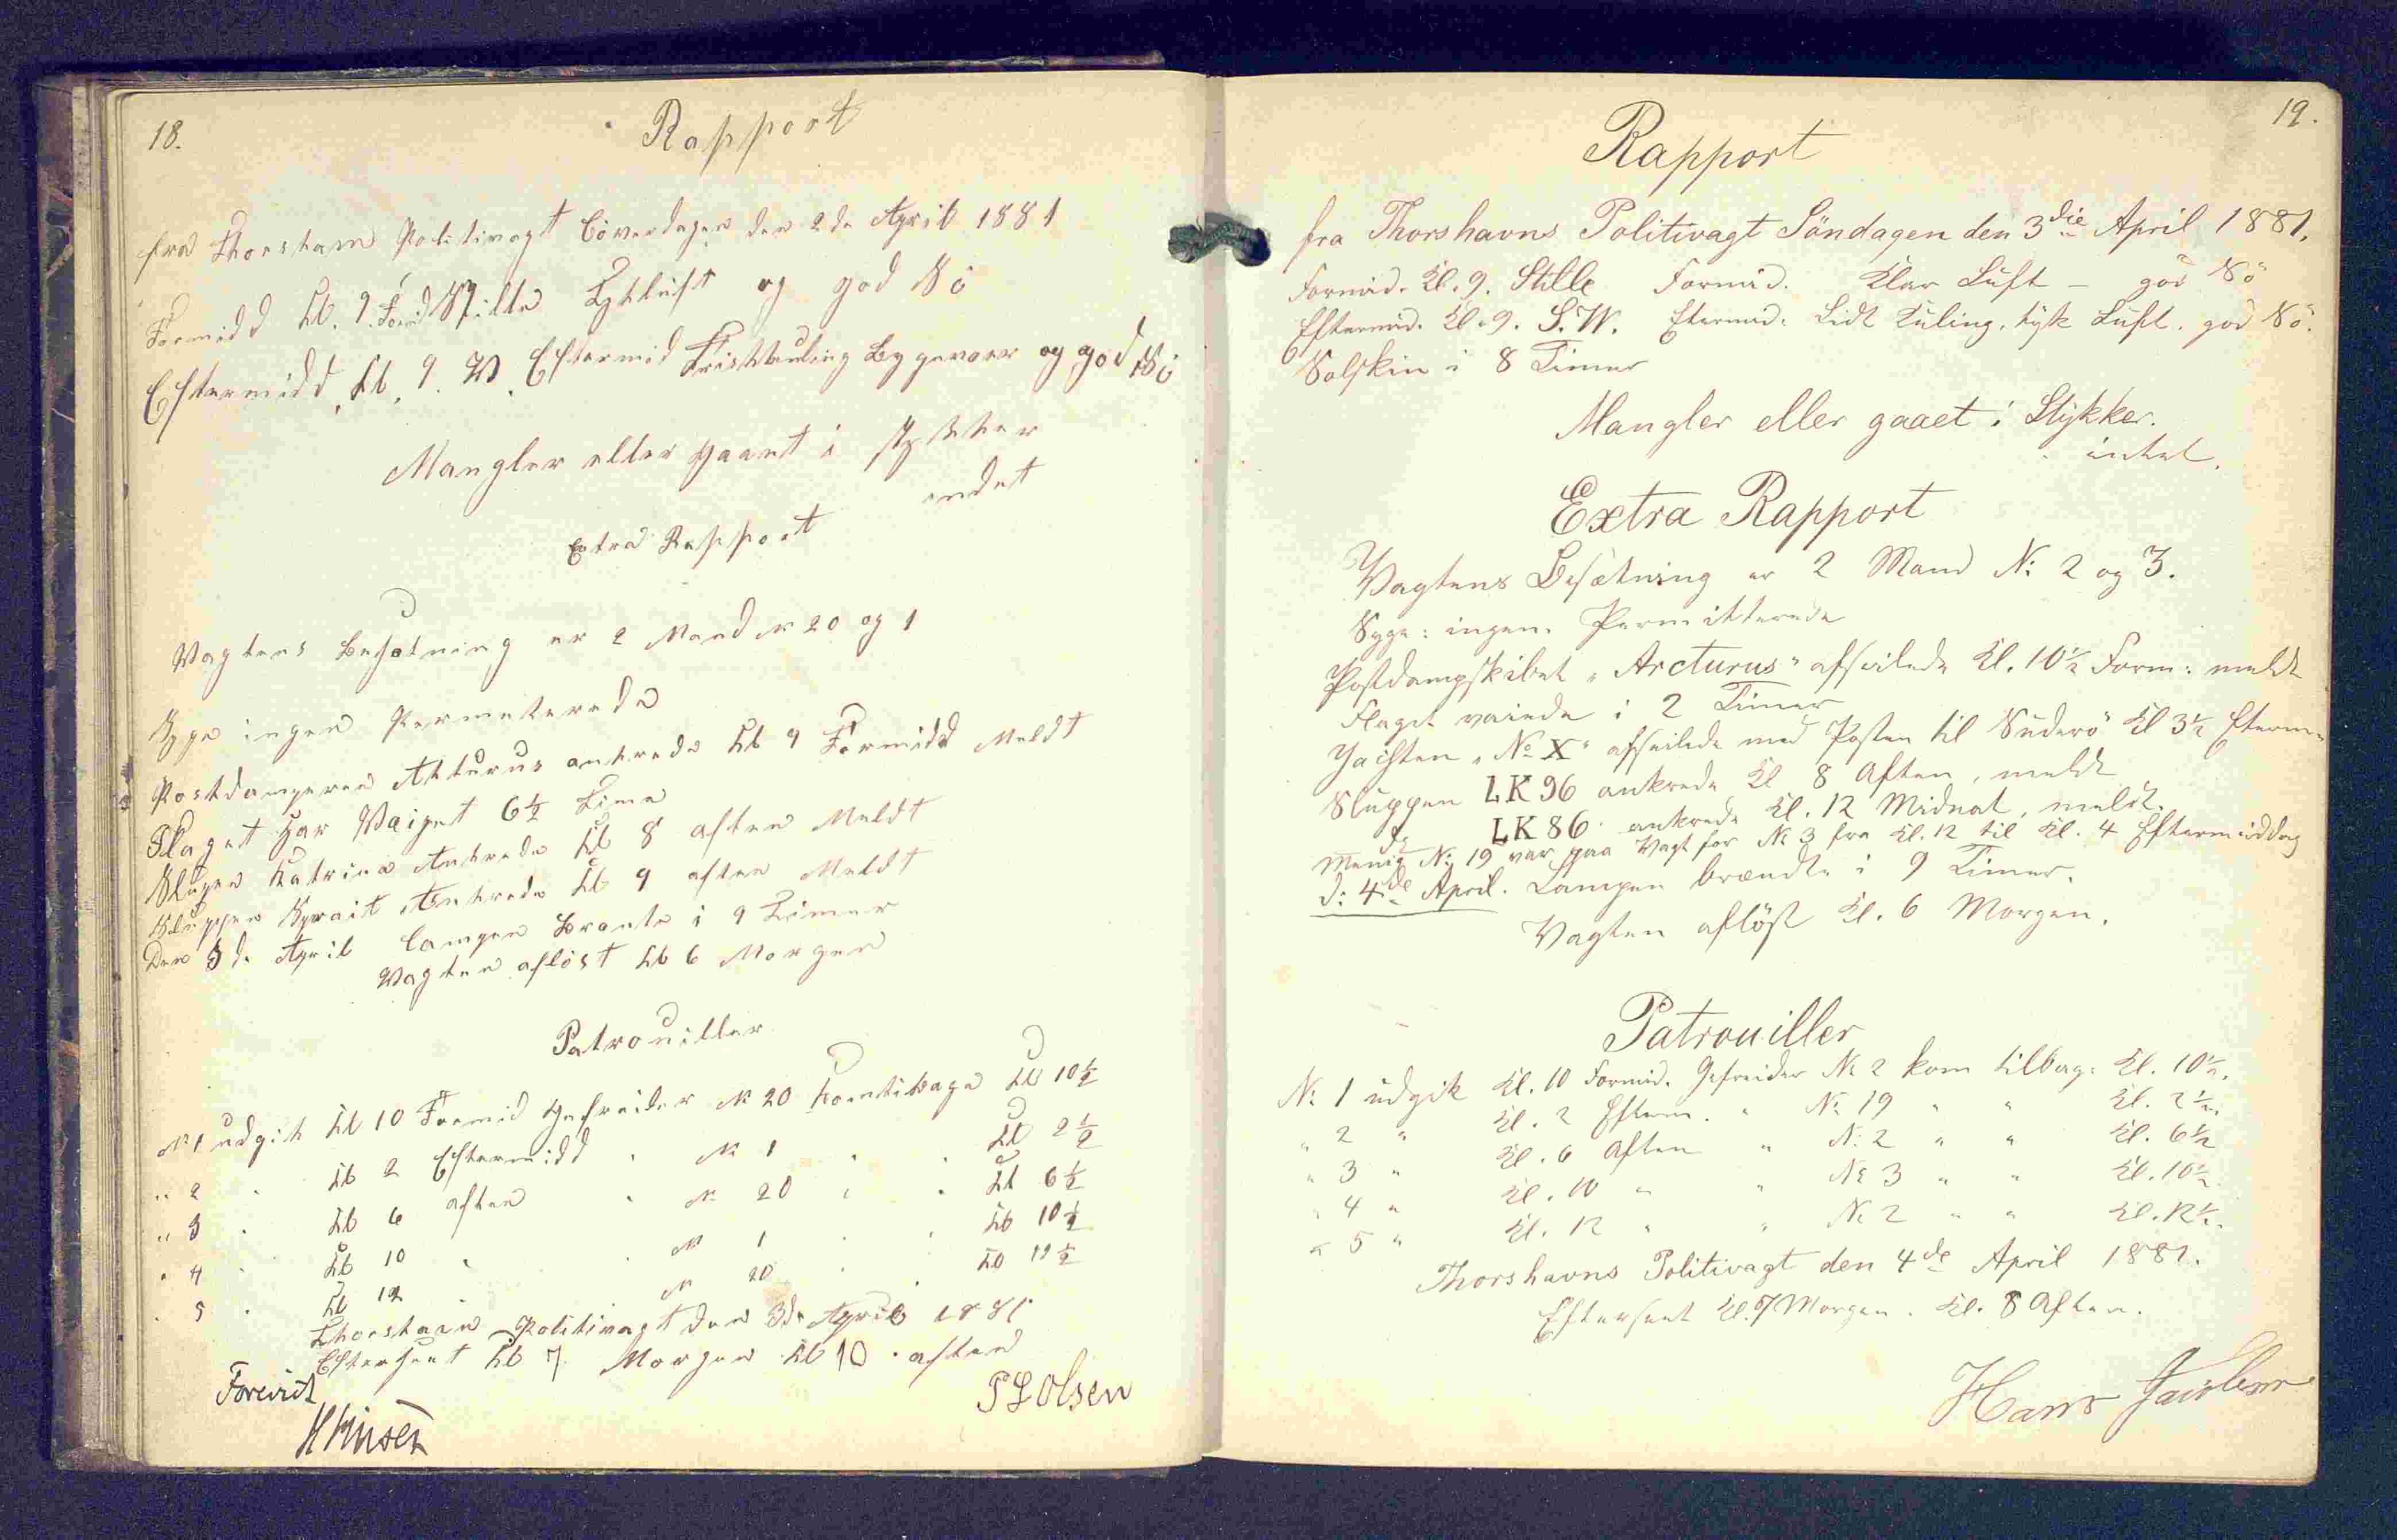 18.
Rapport
fra Thorshavn Politivagt Löverdagen den 2de April 1881
Formidd Kl. 9. Formd Stille Tykluft og god Sö
Eftermidd, Kl, 9. W. Eftermid Frisk Kuling Bygevær og god Sö
Mangler eller gaaet i stykker
indet
Extra Rapport
Vagtens Besætning er 2 Mand N 20 og 1
Syge ingen Permeterede
Postdamperen Akturus ankrede Kl 9 Formidd Meldt
Flaget har Vaiget 6½ Time
Slupen Katrina Ankrede Kl 8 aften Meldt
Sluppen Ankrede Kl 9 aften Meldt
Den 3de April Lampen Brænte i 9 Timer
Vagten aflöst Kl 6 Morgen
Patrouiller
N 1 udgik Kl 10 Formid Gefreider N 20 komtilbage Kl 10½
" 2 " Kl 2 Eftermidd " N 1 " " Kl 2½
" 3 " Kl 6 aften " N 20 " " Kl 6½
" 4 " Kl 10 " " N 1 " " Kl 10½
" 5 " Kl 12 " N 20 " " Kl 12½
Thorshavn Politivagt den 3de April 1881
Efterseet Kl 7 Morgen Kl 10 aften
Forevist
P L Olsen
19.
Rapport
fra Thorshavns Politivagt Söndagen den 3die April 1881.
Formid. Kl. 9. Stille Formid. Klar Luft – god Sö
Eftermid. Kl. 9. S. W. Etermid. Lidt Kuling, tyk Luft, god Sö.
Solskin i 8 Timer
Mangler eller gaaet i Stykker.
intet.
Extra Rapport
Vagtens Besætning er 2 Mand N: 2 og 3.
Syge: ingen. Permitterede
Postdampskibet "Arcturus" afseilede Kl. 10½ Form: meldt
Flaget vaiede i 2 Timer
Jachten "No X" afseilede med Posten til Suderö Kl 3½ Efterm:
Sluppen LK 96 ankrede Kl 8 Aften, meldt
do LK 86 ankrede Kl. 12 Midnat, meldt.
Menig N: 19 var paa Vagt for N: 3 fra Kl. 12 til Kl. 4 Eftermiddag
d: 4de April. Lampen brændte i 9 Timer.
Vagten aflöst Kl. 6 Morgen.
Patrouiller
N: 1 udgik Kl. 10 Formid. Gefreider N: 2 kom tilbag: Kl. 10½.
" 2 " Kl. 2 Efterm. " N: 19 " " Kl. 2½.
" 3 " Kl. 6 Aften " N: 2 " " Kl. 6½
" 4 " Kl. 10 " " N: 3 " " Kl. 10½.
" 5 " Kl. 12 " " N: 2 " " Kl. 12½.
Thorshavns Politivagt den 4de April 1881.
Efterseet Kl. 7 Morgen. Kl. 8 Aften.
Hans Jacobsen